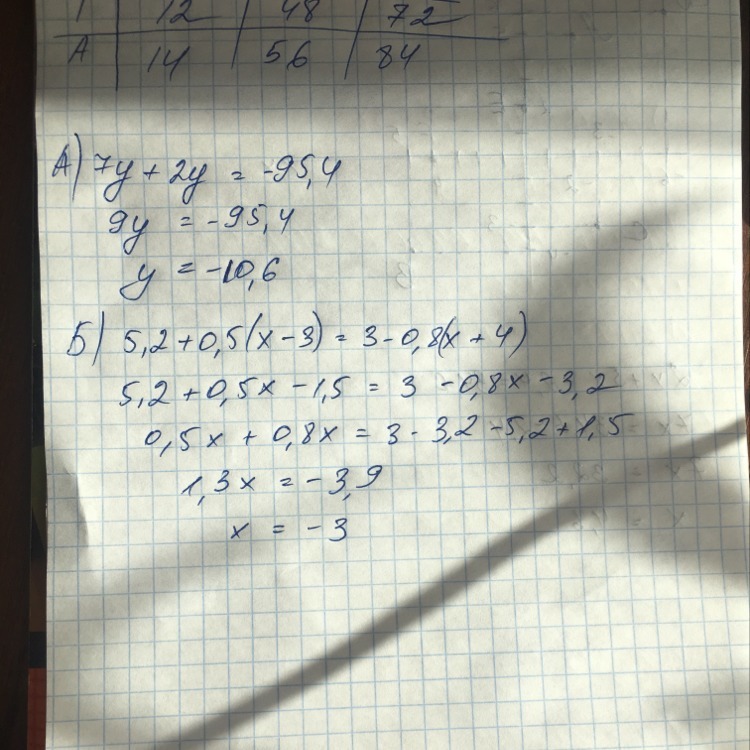 12 48 72
А 14 56 84
А) 7y + 2y = -95,4
9y = -95,4
y = -10,6
Б) 5,2 + 0,5(x - 3) = 3 - 0,8(x + 4)
5,2 + 0,5x - 1,5 = 3 - 0,8x - 3,2
0,5x + 0,8x = 3 - 3,2 - 5,2 + 1,5
1,3x = -3,9
x = -3